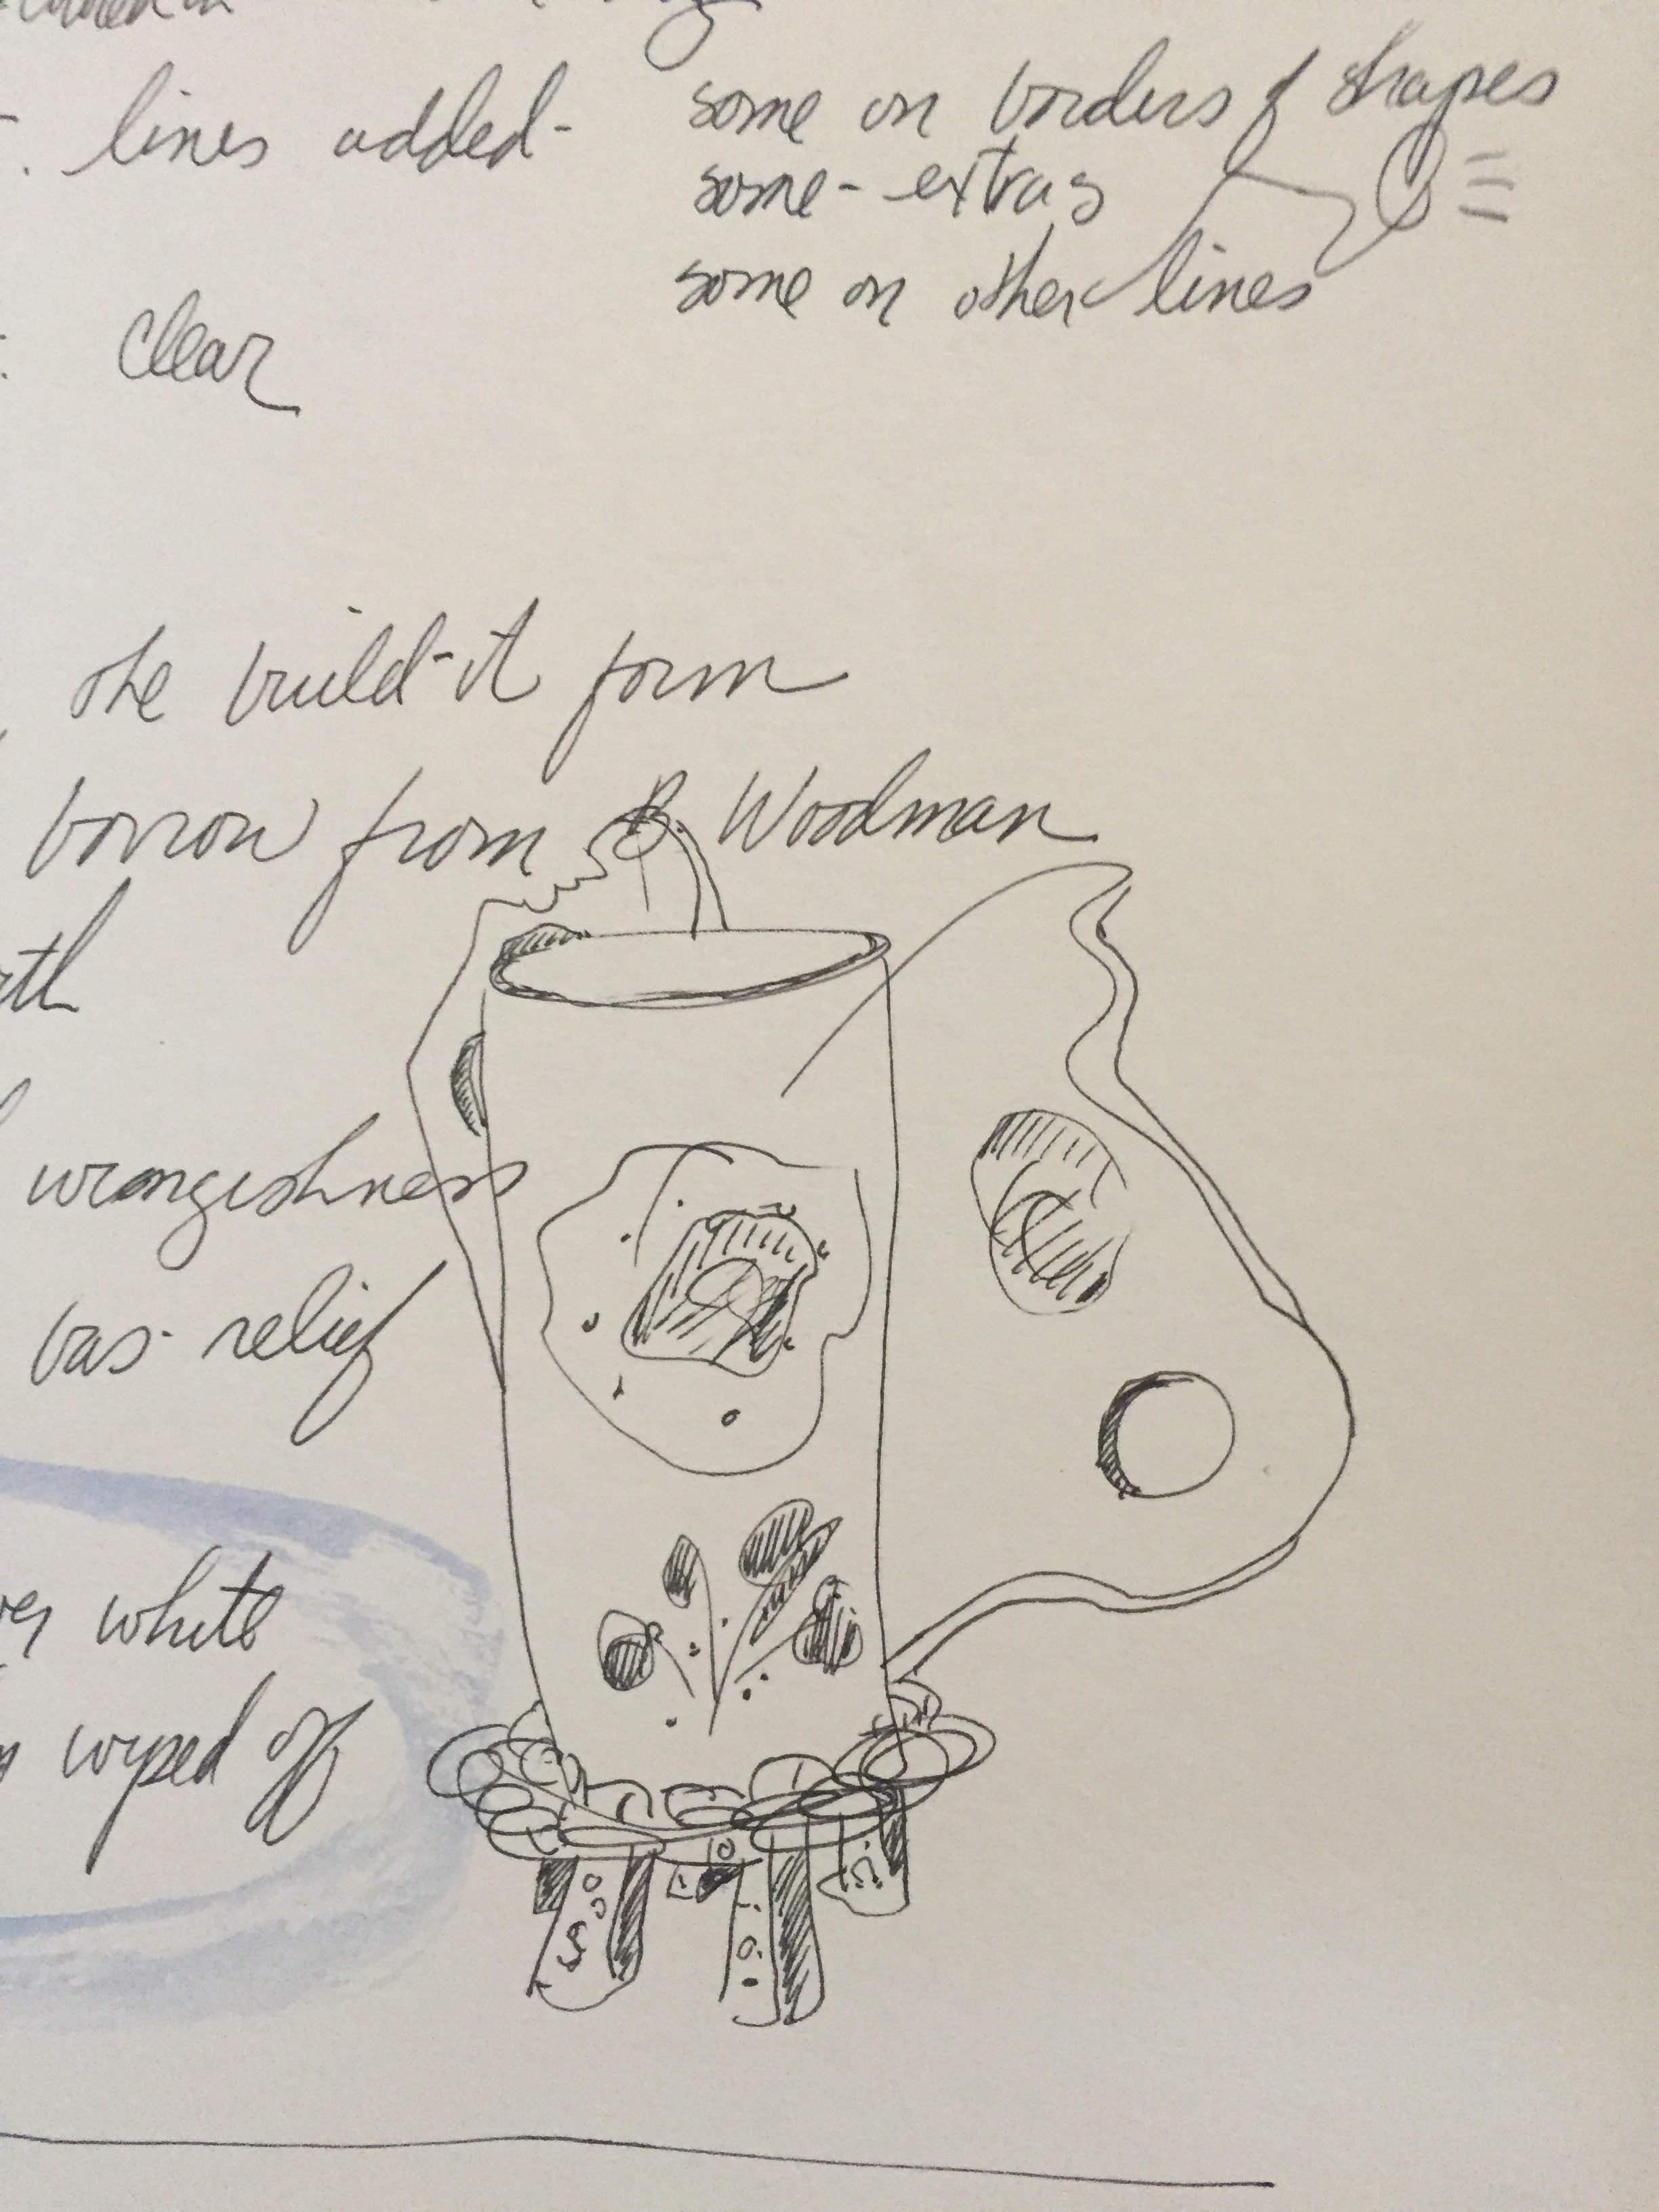 lines added - some on borders of shapes
some - extras
some on other lines
clear
the build-it form
borrow from B. Woodman
wrongishness
bas-relief
white
wiped off